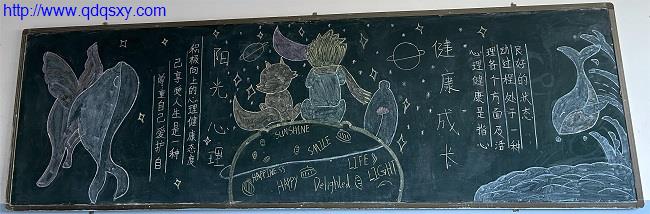 http://www.qdqsxy.com
尊重自己爱护自
己享受人生是一种
积极向上的心理健康态度
阳光心理
SUNSHINE
SMILE
LIFE
HAPPINESS
HAPPY
Delighted
LIGHT
健康成长
心理健康是指心
理各个方面及活
动过程处于一种
良好的状态